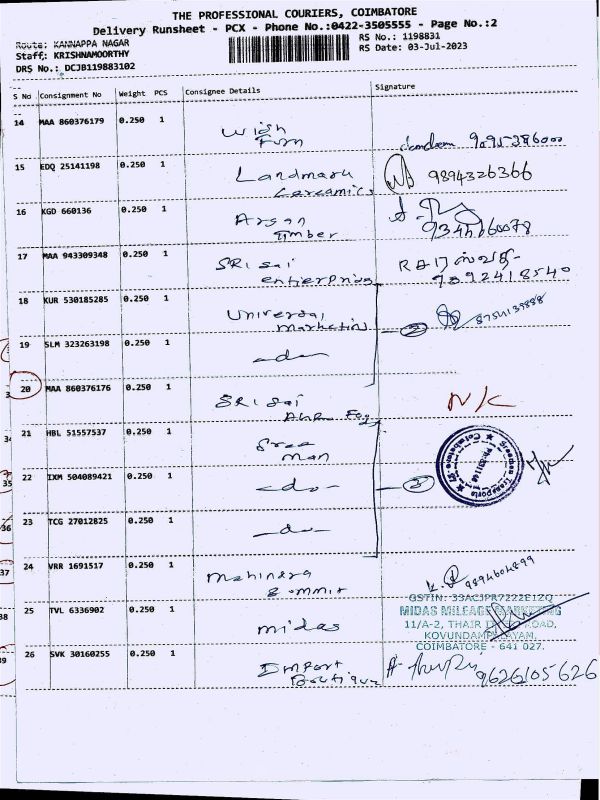 THE PROFESSIONAL COURIERS, COIMBATORE
Delivery Runsheet - PCX - Phone No.:0422-3505555 - Page No.:2
Route: KANNAPPA NAGAR
Staff: KRISHNAMOORTHY
DRS No.: DCJB119883102
RS No.: 1198831
RS Date: 03-Jul-2023
S No Consignment No Weight PCS Consignee Details Signature
14 MAA 860376179 0.250 1 Wish Furn
15 EDQ 25141198 0.250 1 Landmark Cereamics 9894326366
16 KGD 660136 0.250 1 Timber
17 MAA 943309348 0.250 1 SRI Sai entierprise 9892418540
18 KUR 530185285 0.250 1 Universal marketing 2
19 SLM 323263198 0.250 1 -do-
20 MAA 860376176 0.250 1 SRI Sai N/C
21 HBL 51557537 0.250 1 Sree man
22 IXM 504089421 0.250 1 -do- 3
23 TCG 27012825 0.250 1 -do-
24 VRR 1691517 0.250 1 mahindra
25 TVL 6336902 0.250 1 midas
GSTIN: 33ACJPR7222E1ZQ
MIDAS MILEAGE MARKETING
11/A-2, THAIR ROAD,
COIMBATORE - 641 027.
26 SVK 30160255 0.250 1 Import Boutique 9626105626